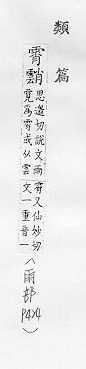 類篇
霄
思邀切說文雨
霓為霄或从雲
霄又仙妙切
文一重音一
(雨部
P424)